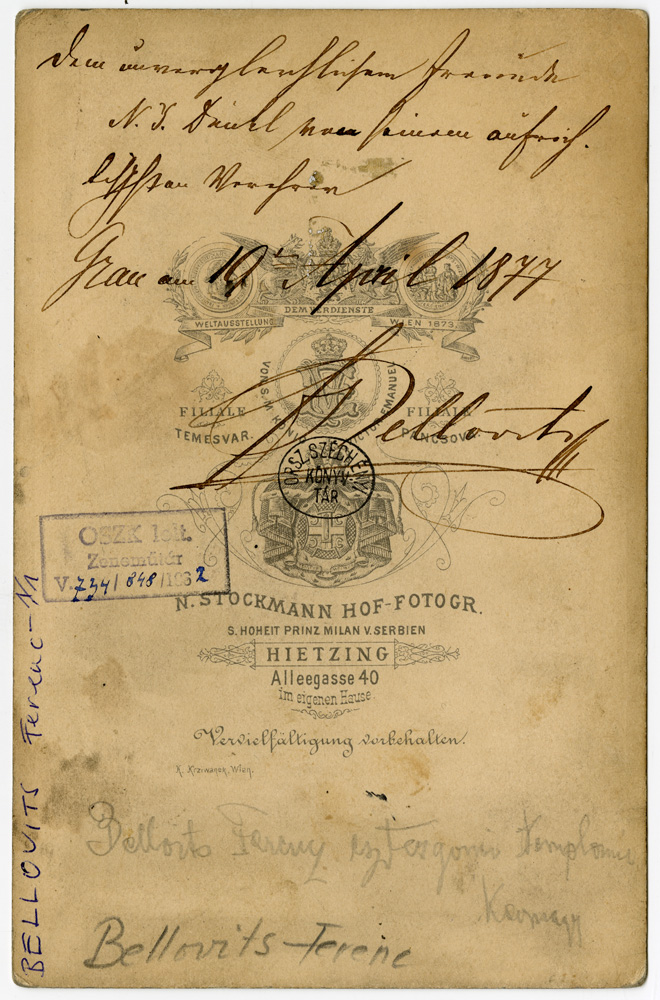 Dem unvergleichlichem Freunde
N. J. Dunkl von seinem aufrich-
tigsten Verehrer
Gran am 19ten April 1877
WELTAUSSTELLUNG
DEM VERDIENSTE
WIEN 1873.
VON S. M. KÖNIG VICTOR EMANUEL
FILIALE
TEMESVAR.
FILIALE
PANCSOVA.
F Bellovits
ORSZ. SZÉCHÉNYI
KÖNYV
TÁR
OSZK lelt.
Zeneműtár
V. 734/848/1962
N. STOCKMANN HOF-FOTOGR.
S. HOHEIT PRINZ MILAN V. SERBIEN
HIETZING
Alleegasse 40
im eigenen Hause.
Vervielfältigung vorbehalten.
K. Krziwanek, Wien.
Bellovits Ferenz esztergomi templomi
Karnagy
Bellovits Ferenc
BELLOVITS Ferenc-N1